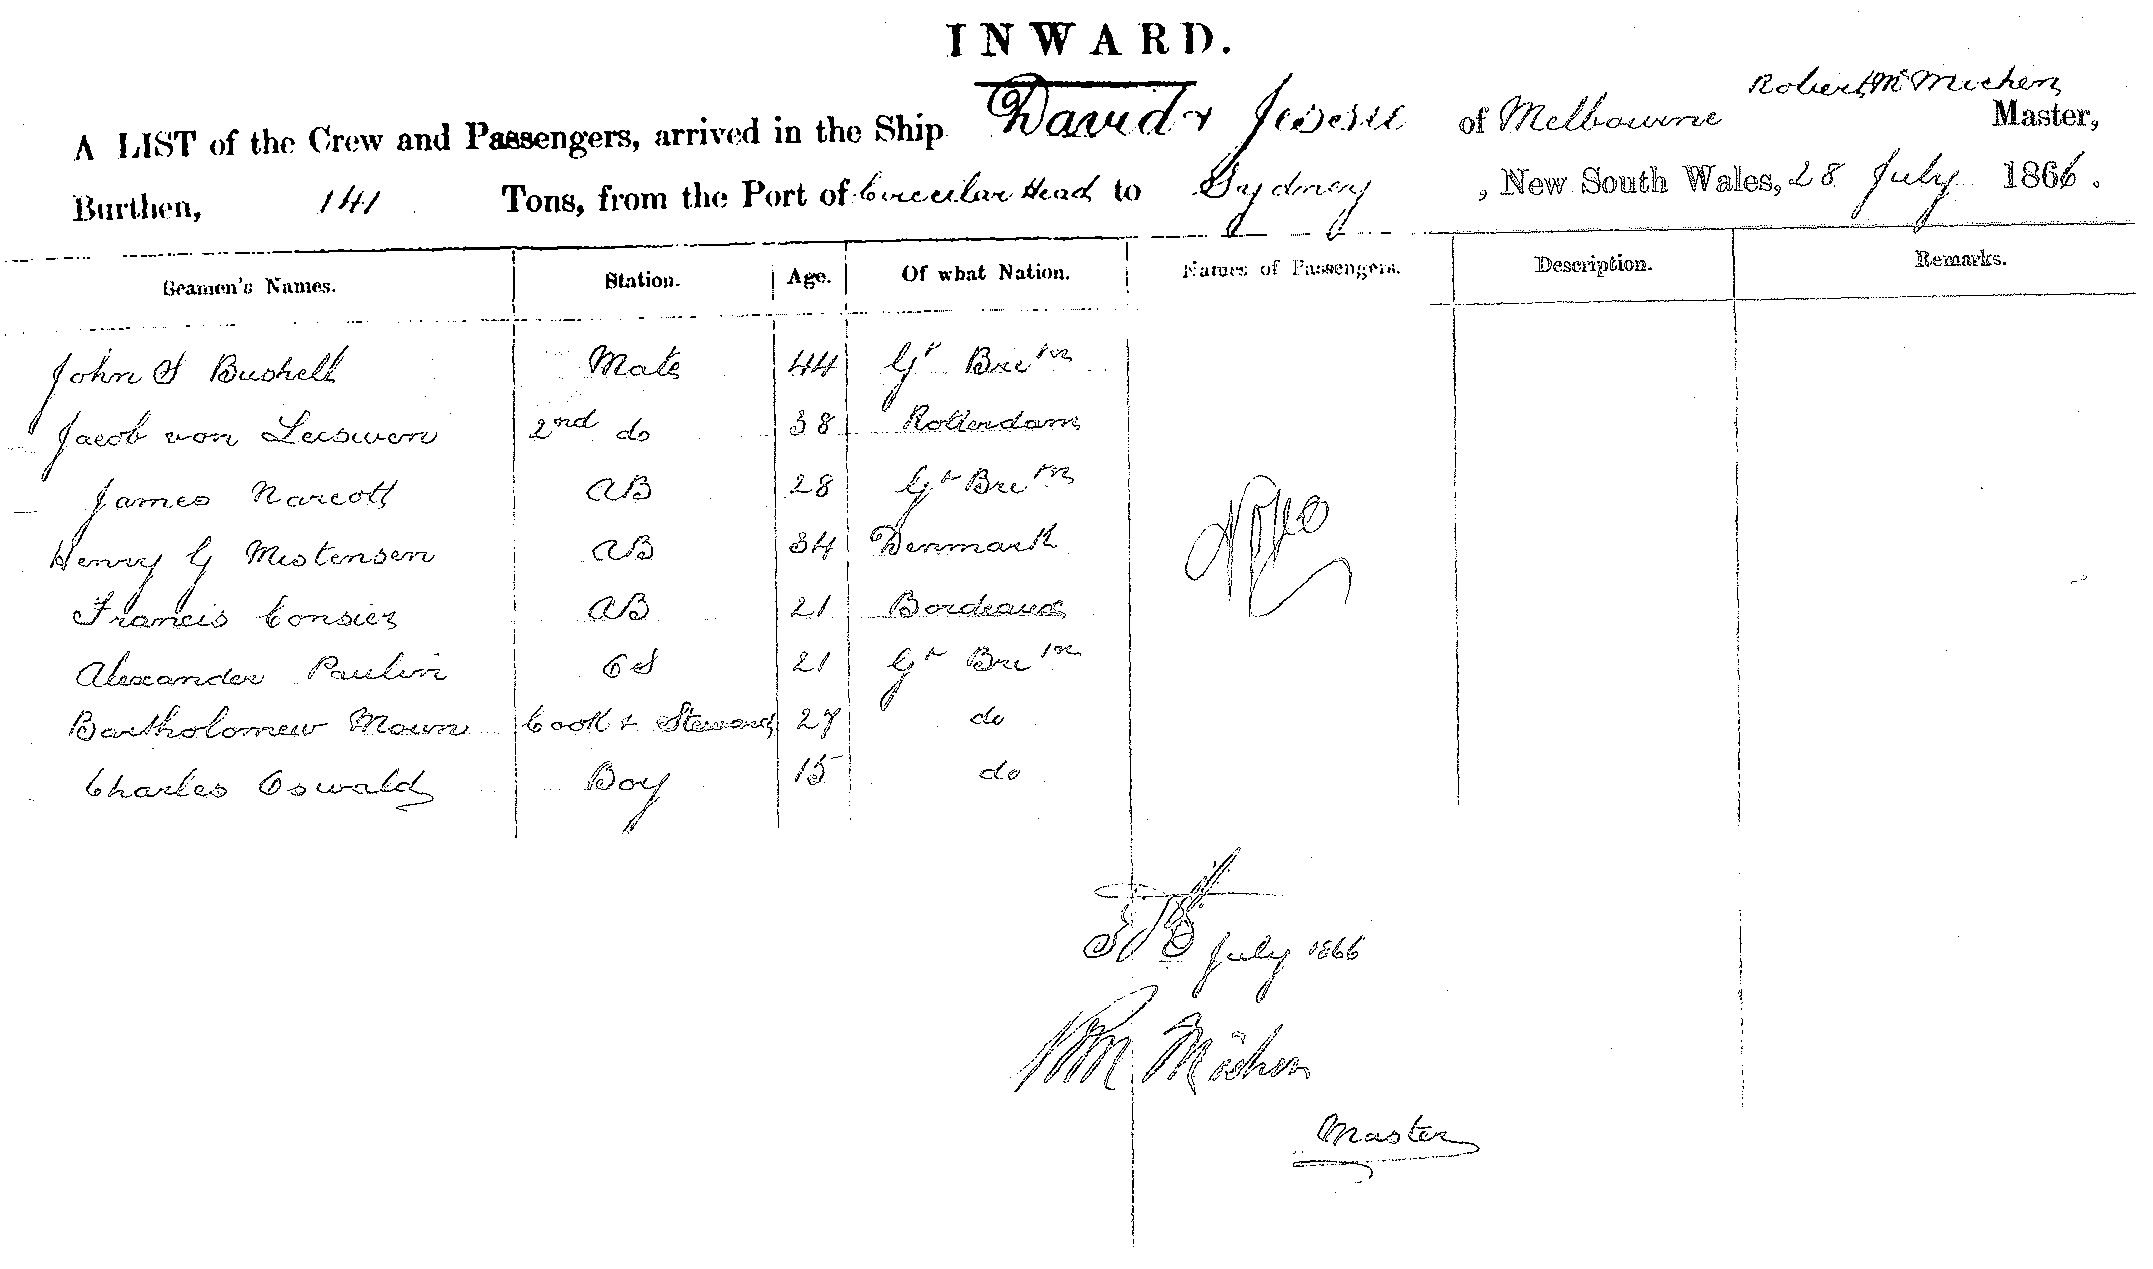 INWARD.
Robert Mc Michen
A LIST of the Crew and Passengers, arrived in the Ship David & Jessie of Melbourne Master,
Burthen, 141 Tons, from the Port of Circular Head to Sydney, New South Wales, 28 July 1866.
Seamen's Names. Station. Age. Of what Nation. Names of Passengers. Description. Remarks.
John S Bushell Mate 44 Gt Britn
Jacob von Leeswen 2nd do 38 Rotterdam
James Narcott AB 28 Gt Britn
Henry G Mistensen AB 34 Denmark
None
Francis Consier AB 21 Bordeaux
Alexander Paulin OS 21 Gt Britn
Bartholomew Mown Cook & Steward 27 do
Charles Oswald Boy 15 do
July 1866
Michen
Master